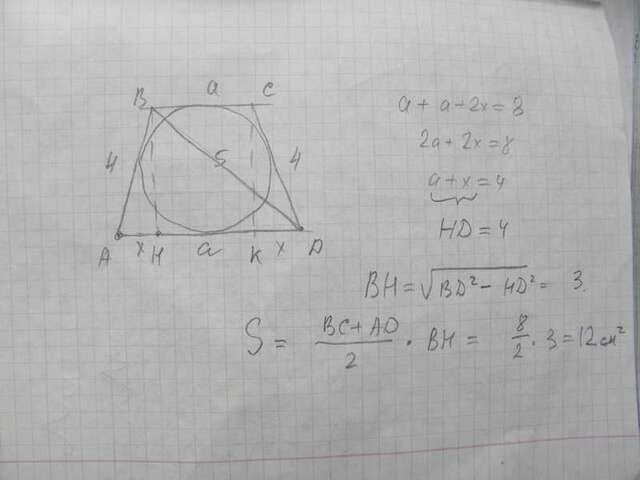 a
B C
4 5 4
A x H a K x D
a + a + 2x = 8
2a + 2x = 8
a + x = 4
HD = 4
BH = √BD² - HD² = 3
S = BC + AD / 2 · BH = 8/2 · 3 = 12 см²